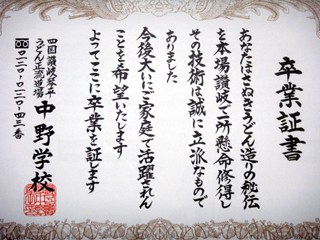 卒業証書
あなたはさぬきうどん造りの秘伝
を本場讃岐で一所懸命修得し
その技術は誠に立派なもので
ありました
今後大いにご家庭で活躍されん
ことを希望いたします
よってここに卒業を証します
四国讃岐琴平
うどん正流道場
中野学校
〇一二〇-〇一二〇-四三番